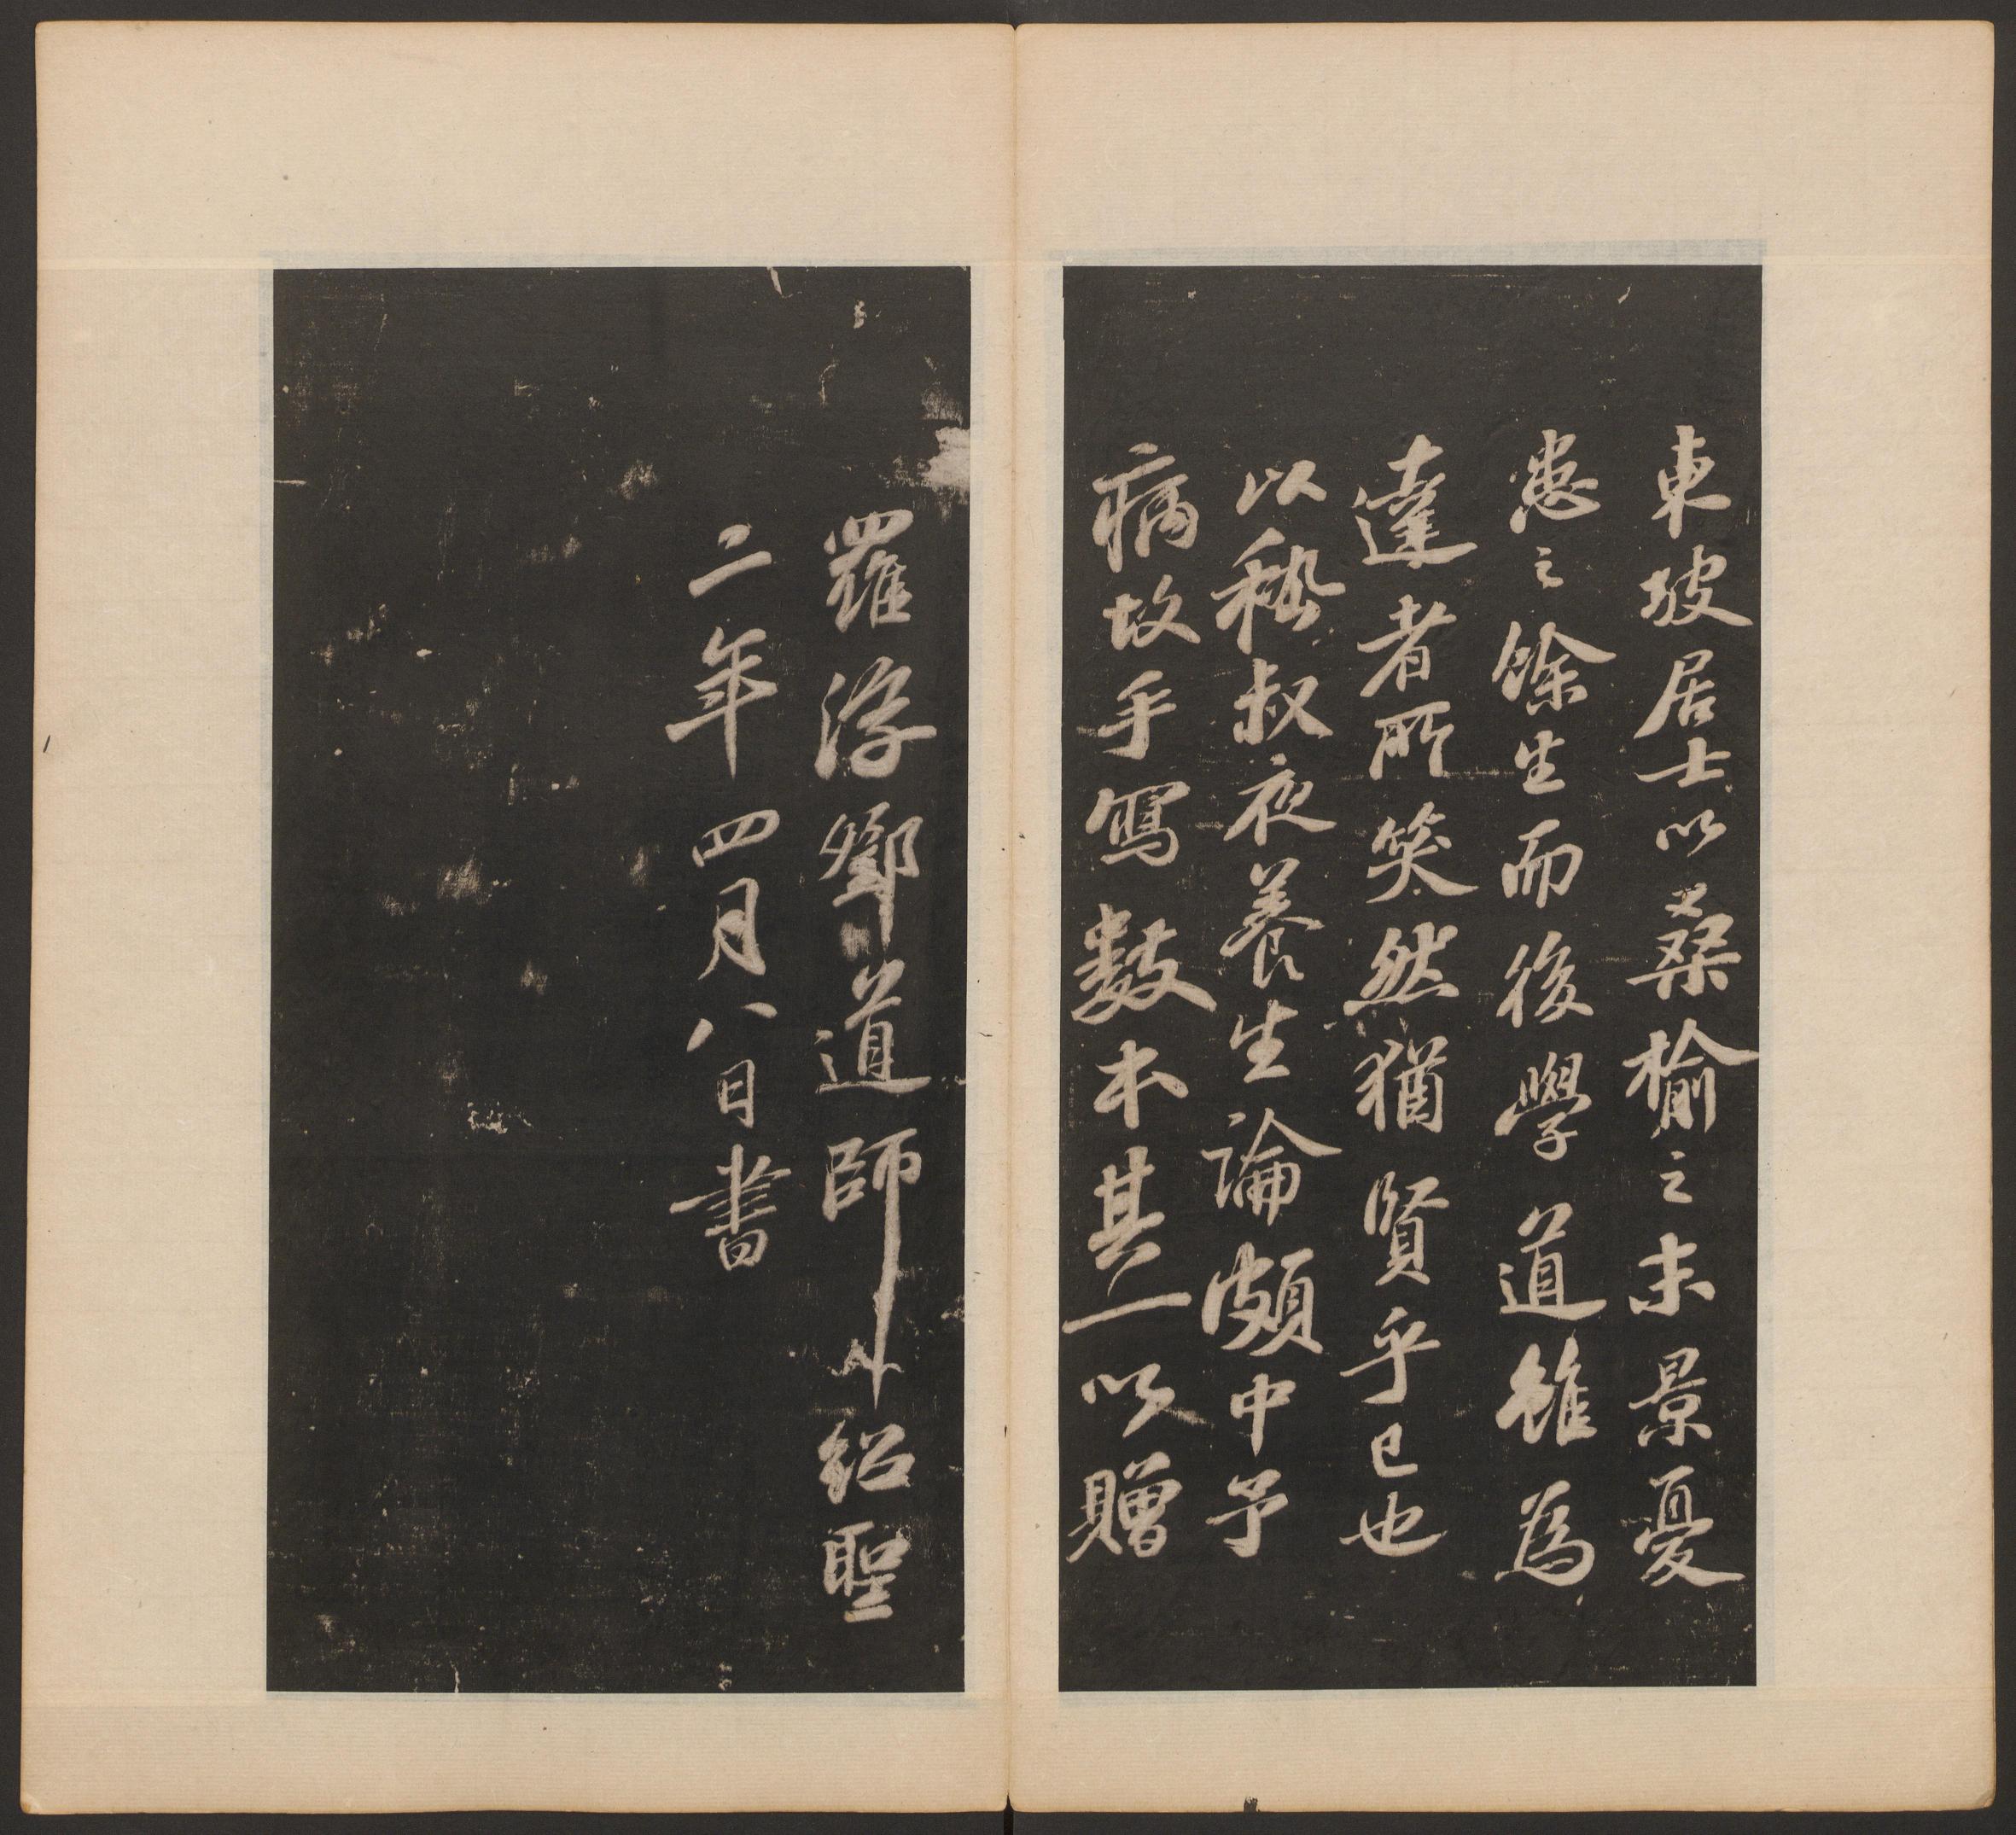 東坡居士以桑榆之末景憂
患之餘生而後學道雖為
達者所笑然猶賢乎已也
以嵇叔夜養生論頗中予
病故手寫數本其一以贈
羅浮鄧道師紹聖
二年四月八日書